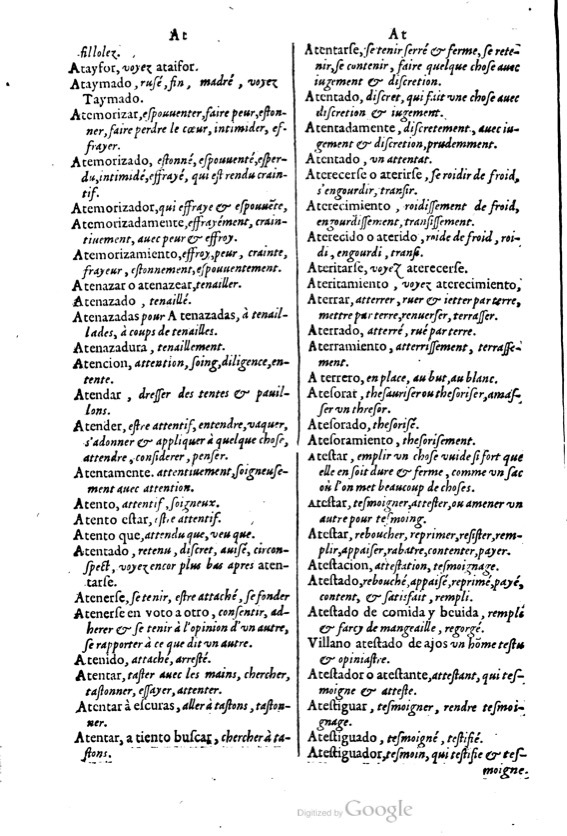 At
fillolez.
Atayfor, voyez ataifor.
Ataymado, rusé, fin, madré, voyez
Taymado.
Atemorizar, espouuenter, faire peur, eston-
ner, faire perdre le cœur, intimider, ef-
frayer.
Atemorizado, estonné, espouuenté, esper-
du, intimidé, effrayé, qui est rendu crain-
tif.
Atemorizador, qui effraye & espouuẽte,
Atemorizadamente, effrayément, crain-
tiuement, auec peur & effroy.
Atemorizamiento, effroy, peur, crainte,
frayeur, estonnement, espouuentement.
Atenazar o atenazear, tenailler.
Atenazado, tenaillé.
Atenazadas pour A tenazadas, à tenail-
lades, à coups de tenailles.
Atenazadura, tenaillement.
Atencion, attention, soing, diligence, en-
tente.
Atendar, dresser des tentes & pauil-
lons.
Atender, estre attentif, entendre, vaquer,
s'adonner & appliquer à quelque chose,
attendre, considerer, penser.
Atentamente. attentiuement, soigneuse-
ment auec attention.
Atento, attentif, soigneux.
Atento estar, estre attentif.
Atento que, attendu que, veu que.
Atentado, retenu, discret, auisé, circon-
spect, voyez encor plus bas apres aten-
tarse.
Atenerse, se tenir, estre attaché, se fonder
Atenerse en voto a otro, consentir, ad-
herer & se tenir à l'opinion d'un autre,
se rapporter à ce que dit un autre.
Atenido, attaché, arresté.
Atentar, taster auec les mains, chercher,
tastonner, essayer, attenter.
Atentar à escuras, aller à tastons, taston-
ner.
Atentar, a tiento buscar, chercher à ta-
stons.
At
Atentarse, se tenir serré & ferme, se rete-
nir, se contenir, faire quelque chose auec
iugement & discretion.
Atentado, discret, qui fait vne chose auec
discretion & iugement.
Atentadamente, discretement, auec iu-
gement & discretion, prudemment.
Atentado, un attentat.
Aterecerse o aterirse, se roidir de froid,
s'engourdir, transir.
Aterecimiento, roidissement de froid,
engourdissement, transissement.
Aterecido o aterido, roide de froid, roi-
di, engourdi, transi.
Ateritarse, voyez aterecerse.
Ateritamiento, voyez aterecimiento,
Aterrar, atterrer, ruer & ietter par terre,
mettre par terre, renuerser, terrasser.
Aterrado, atterré, rué par terre.
Aterramiento, atterrissement, terrasse-
ment.
A terrero, en place, au but, au blanc.
Atesorar, thesauriser ou thesoriser, amas-
ser un thresor.
Atesorado, thesorisé.
Atesoramiento, thesorisement.
Atestar, emplir un chose vuide si fort que
elle en soit dure & ferme, comme un sac
où l'on met beaucoup de choses.
Atestar, tesmoigner, attester, ou amener un
autre pour tesmoing.
Atestar, reboucher, reprimer, resister, rem-
plir, appaiser, rabatre, contenter, payer.
Atestacion, attestation, tesmoignage.
Atestado, rebouché, appaisé, reprimé, payé,
content, & satisfait, rempli.
Atestado de comida y beuida, rempli
& farcy de mangeaille, regorgé.
Villano atestado de ajos un hõme testu
& opiniastre.
Atestador o atestante, attestant, qui tes-
moigne & atteste.
Atestiguar, tesmoigner, rendre tesmoi-
gnage.
Atestiguado, tesmoigné, testifié.
Atestiguador, tesmoin, qui testifie & tes-
moigne.
Digitized by Google